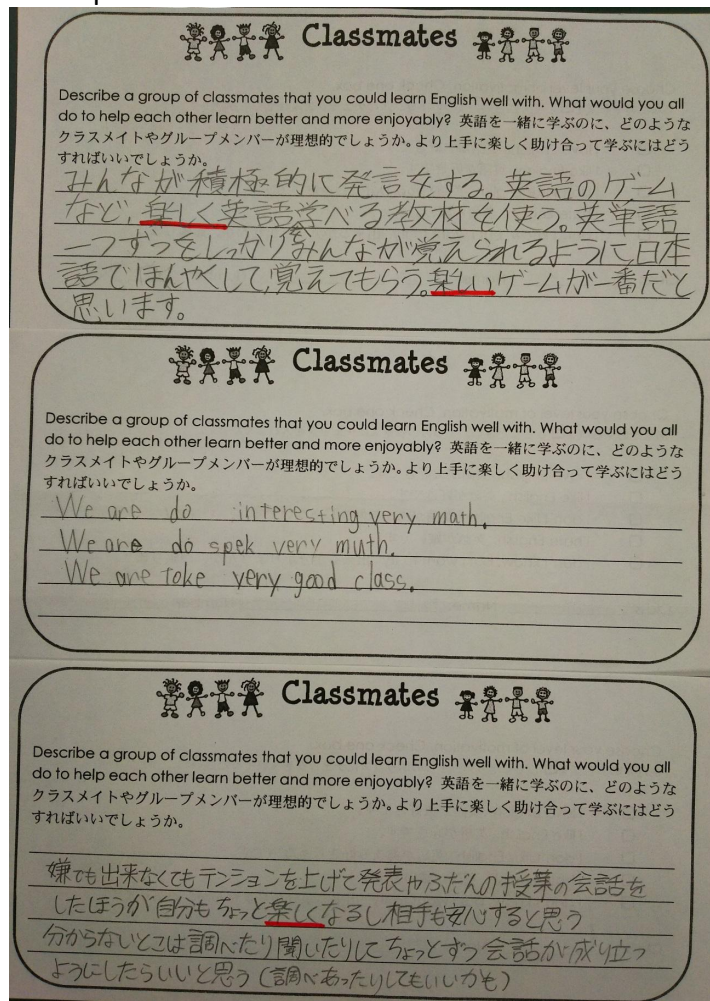 Classmates
Describe a group of classmates that you could learn English well with. What would you all
do to help each other learn better and more enjoyably? 英語を一緒に学ぶのに、どのような
クラスメイトやグループメンバーが理想的でしょうか。より上手に楽しく助け合って学ぶにはどう
すればいいでしょうか。
みんなが積極的に発言をする。英語のゲーム
など、楽しく英語学べる教材を使う。英単語
一つずつをしっかりみんなが覚えられるように、日本
語でほんやくして、覚えてもらう。楽しいゲームが一番だと
思います。
Classmates
Describe a group of classmates that you could learn English well with. What would you all
do to help each other learn better and more enjoyably? 英語を一緒に学ぶのに、どのような
クラスメイトやグループメンバーが理想的でしょうか。より上手に楽しく助け合って学ぶにはどう
すればいいでしょうか。
We are do interesting very math.
We are do spek very muth.
We are toke very good class.
Classmates
Describe a group of classmates that you could learn English well with. What would you all
do to help each other learn better and more enjoyably? 英語を一緒に学ぶのに、どのような
クラスメイトやグループメンバーが理想的でしょうか。より上手に楽しく助け合って学ぶにはどう
すればいいでしょうか。
嫌でも出来なくてもテンションを上げて発表やふだんの授業の会話を
したほうが自分もちょっと楽しくなるし相手も安心すると思う
分からないとこは調べたり聞いたりしてちょっとずつ会話が成り立つ
ようにしたらいいと思う(調べあったりしてもいいかも)